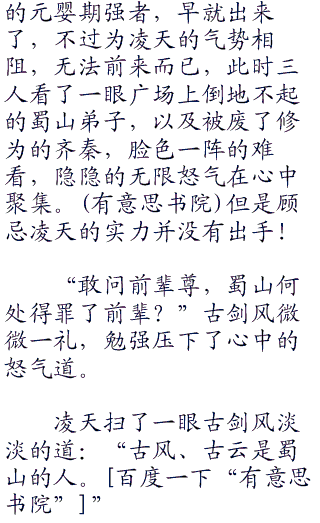 的元婴期强者，早就出来
了，不过为凌天的气势相
阻，无法前来而已，此时三
人看了一眼广场上倒地不起
的蜀山弟子，以及被废了修
为的齐秦，脸色一阵的难
看，隐隐的无限怒气在心中
聚集。(有意思书院)但是顾
忌凌天的实力并没有出手！
“敢问前辈尊，蜀山何
处得罪了前辈？”古剑风微
微一礼，勉强压下了心中的
怒气道。
凌天扫了一眼古剑风淡
淡的道：“古风、古云是蜀
山的人。[百度一下“有意思
书院”]”